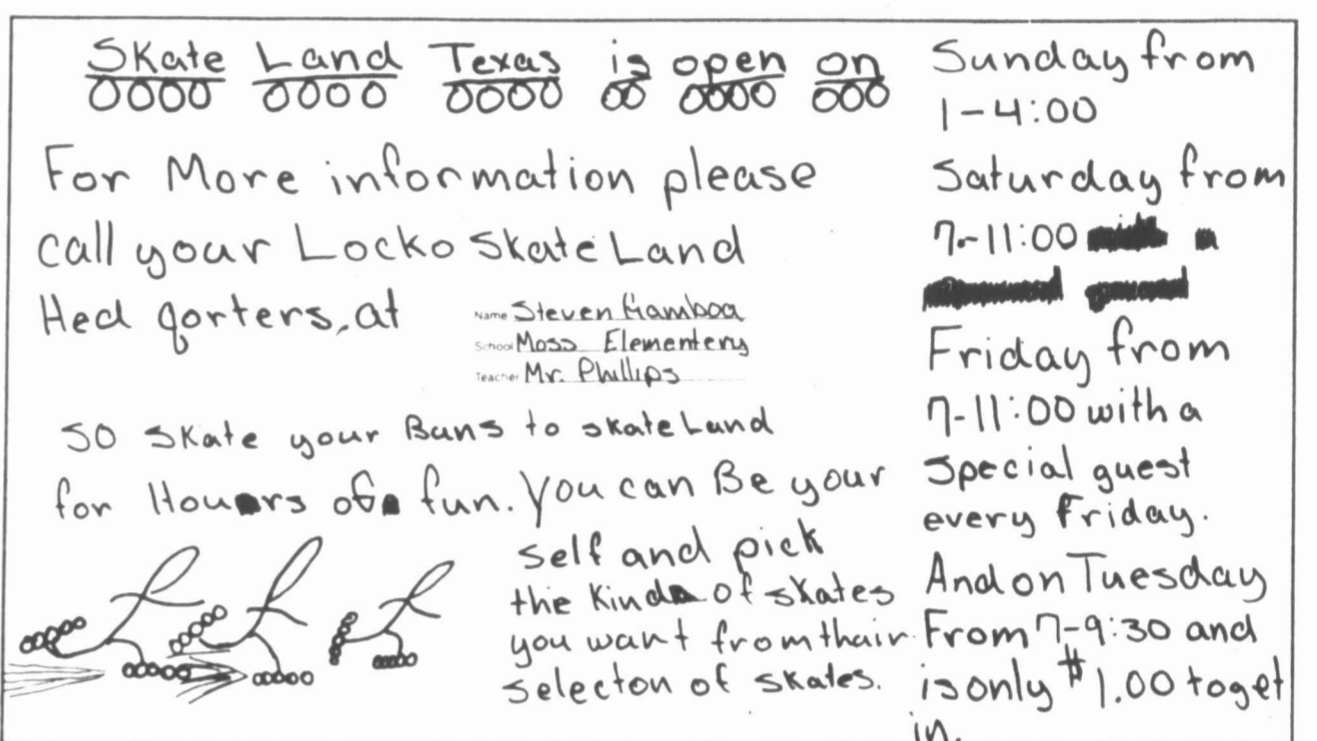 Skate Land Texas is open on
For More information please
call your Locko Skate Land
Hed qorters, at
Name Steven Gamboa
School Moss Elementery
Teacher Mr. Phillips
SO Skate your Buns to skate Land
for Houers of fun. You can Be your
self and pick
the kind of skates
you want from thair
selecton of skates.
Sunday from
1-4:00
Saturday from
7-11:00
Friday from
7-11:00 with a
special guest
every Friday.
And on Tuesday
From 7-9:30 and
is only $1.00 to get
in.